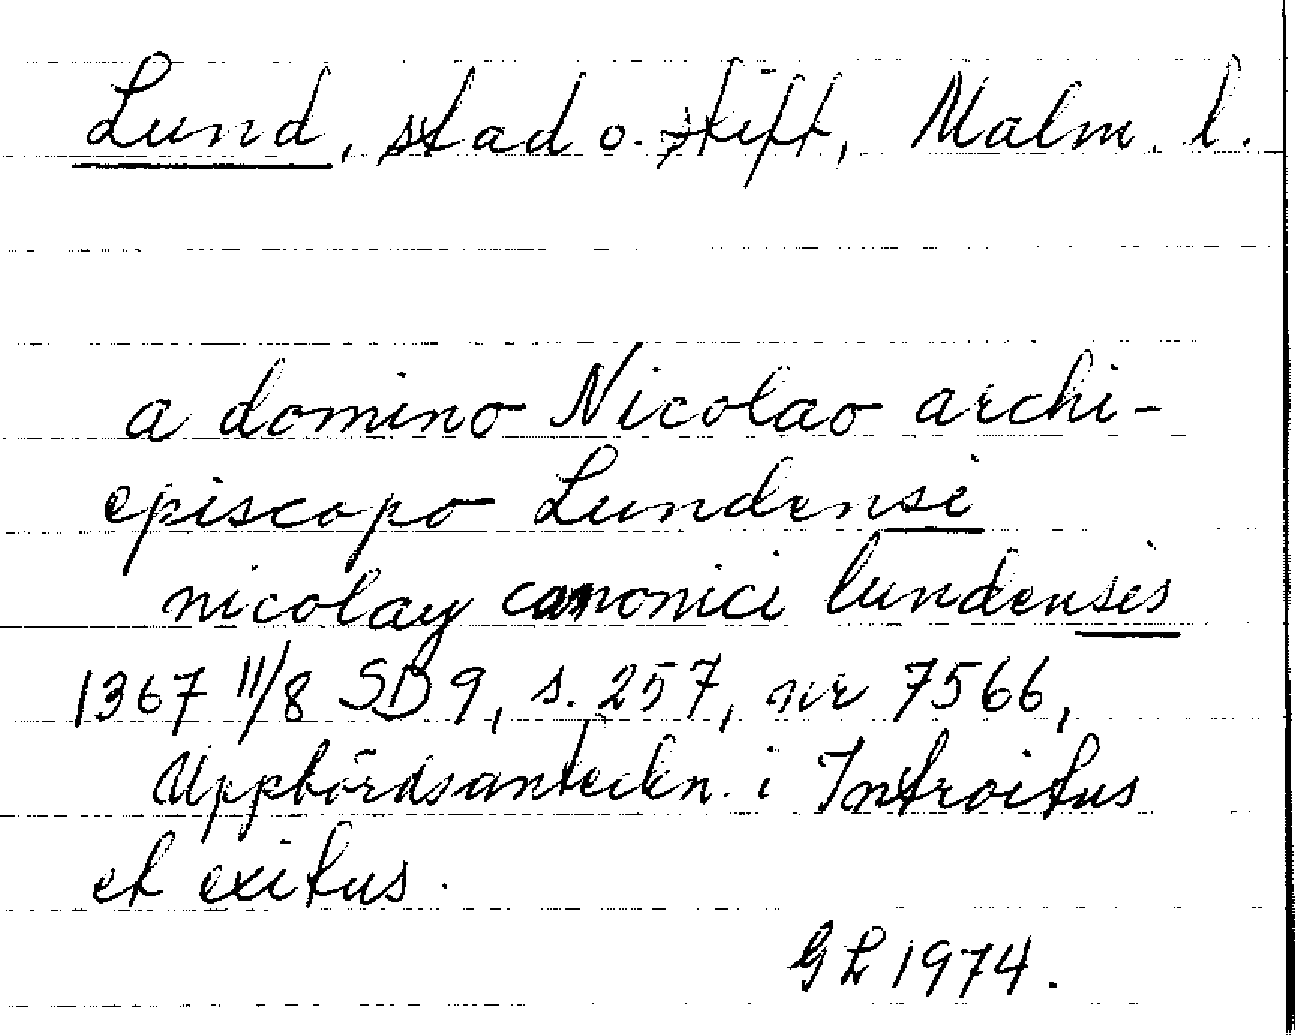 Lund, stad o. stift, Malm. l.
a domino Nicolao archi-
episcopo Lundensi
nicolay canonici lundensis
1367 11/8 SD 9, s. 257, nr 7566,
Uppbördsanteckn. i Introitus
et exitus.
GL 1974.